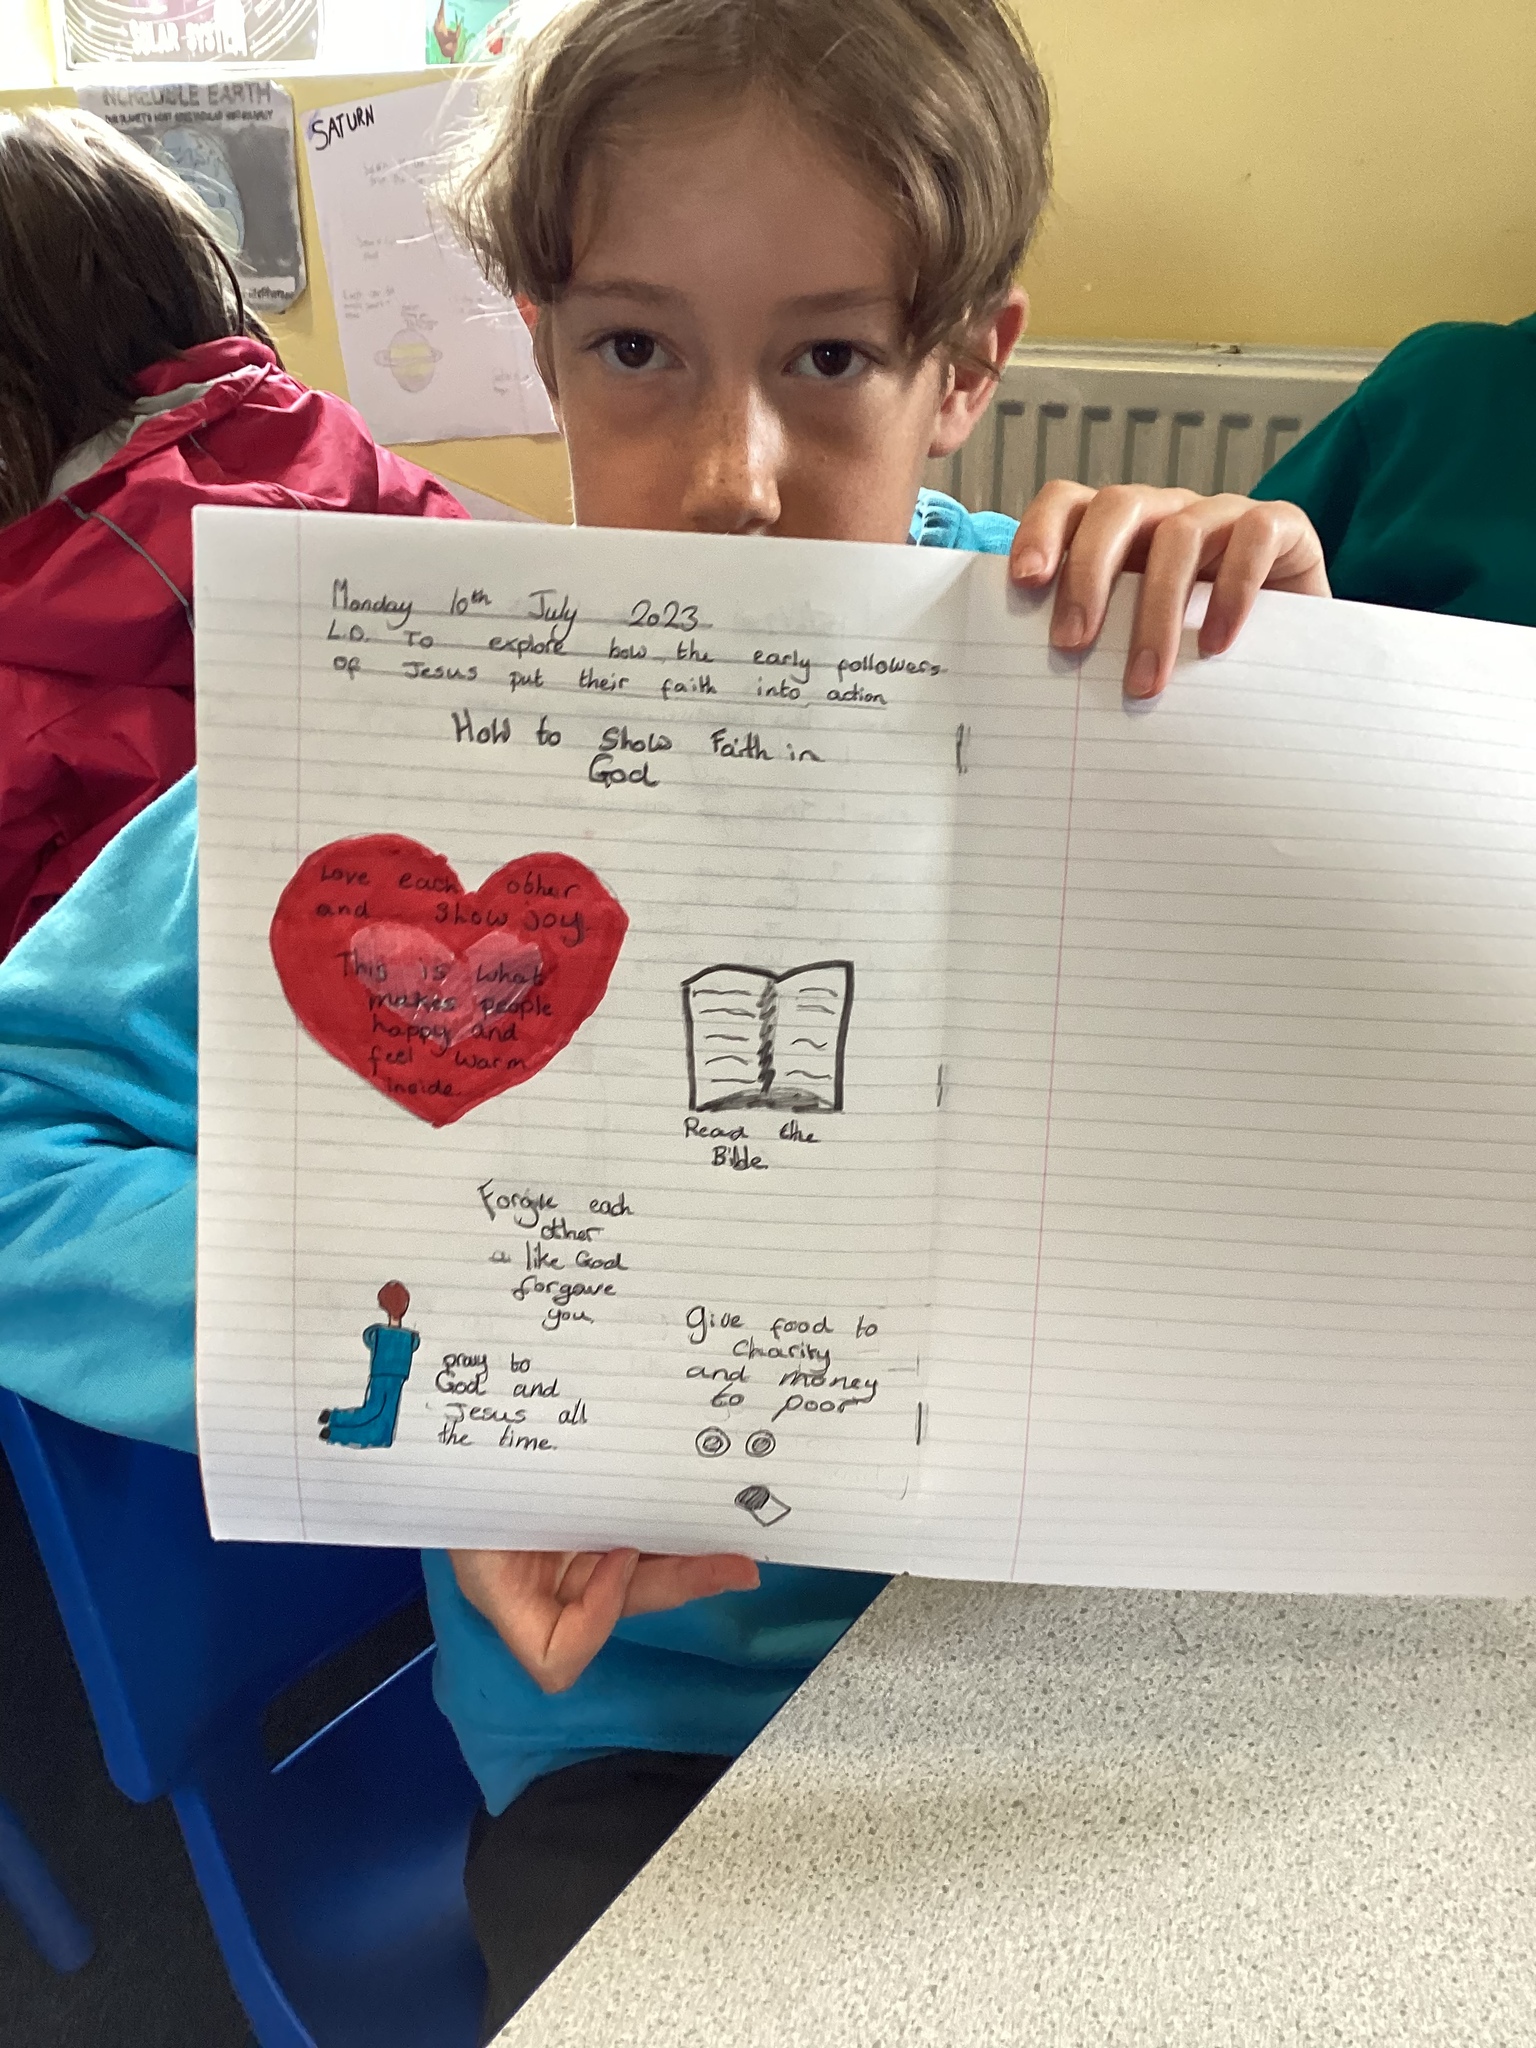 SOLAR SYSTEM
INCREDIBLE EARTH
SATURN
Monday 10th July 2023
L.O. To explore how the early followers
of Jesus put their faith into action
How to Show Faith in
God
Love each other
and show joy.
This is what
makes people
happy and
feel warm
inside.
Read the
Bible.
Forgive each
other
a like God
forgave
you.
pray to
God and
Jesus all
the time.
Give food to
Charity
and money
to poor